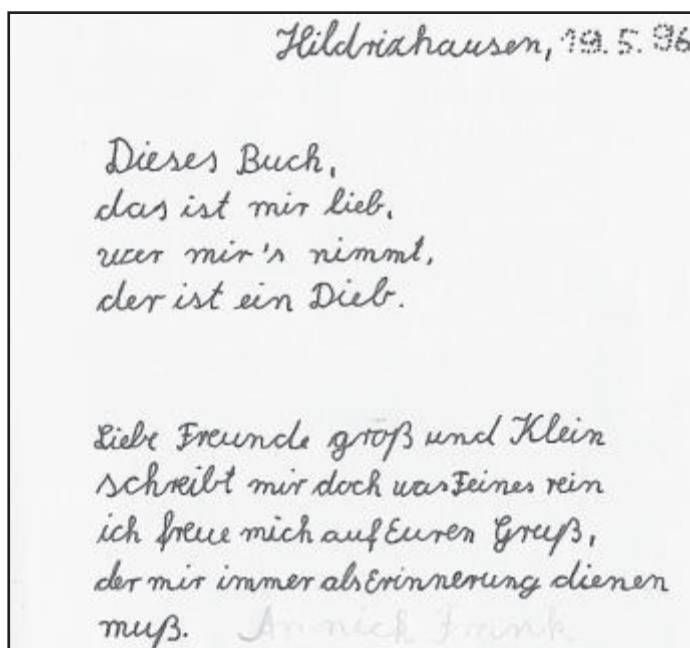 Hildrizhausen, 19.5.96
Dieses Buch,
das ist mir lieb,
wer mir's nimmt,
der ist ein Dieb.
Liebe Freunde groß und Klein
schreibt mir doch was Feines rein
ich freue mich auf Euren Gruß,
der mir immer als Erinnerung dienen
muß. Annick Frank